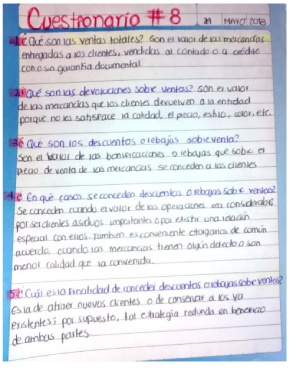 Cuestionario # 8
MAYO 2018
1.- ¿Qué son las ventas totales? Son el valor de las mercancías
entregadas a los clientes, vendidas al contado o a crédito
con o sin garantía documental.
2.- ¿Qué son las devoluciones sobre ventas? son el valor
de las mercancías que los clientes devuelven a la entidad
porque no les satisface la calidad, el precio, estilo, color, etc.
3.- ¿Qué son los descuentos o rebajas sobre venta?
Son el valor de las bonificaciones o rebajas que sobre el
precio de venta de las mercancías se conceden a los clientes
4.- ¿En qué casos se conceden descuentos o rebajas sobre ventas?
Se conceden cuando el valor de las operaciones es considerado
por ser clientes asiduos, importantes o por existir una relación
especial con ellos. También es conveniente otorgarlos de común
acuerdo, cuando las mercancías tienen algún defecto o son
menor calidad que la convenida.
5.- ¿Cuál es la finalidad de conceder descuentos o rebajas sobre ventas?
Es la de atraer nuevos clientes o de conservar a los ya
existentes; por supuesto, tal estrategia redunda en beneficio
de ambas partes